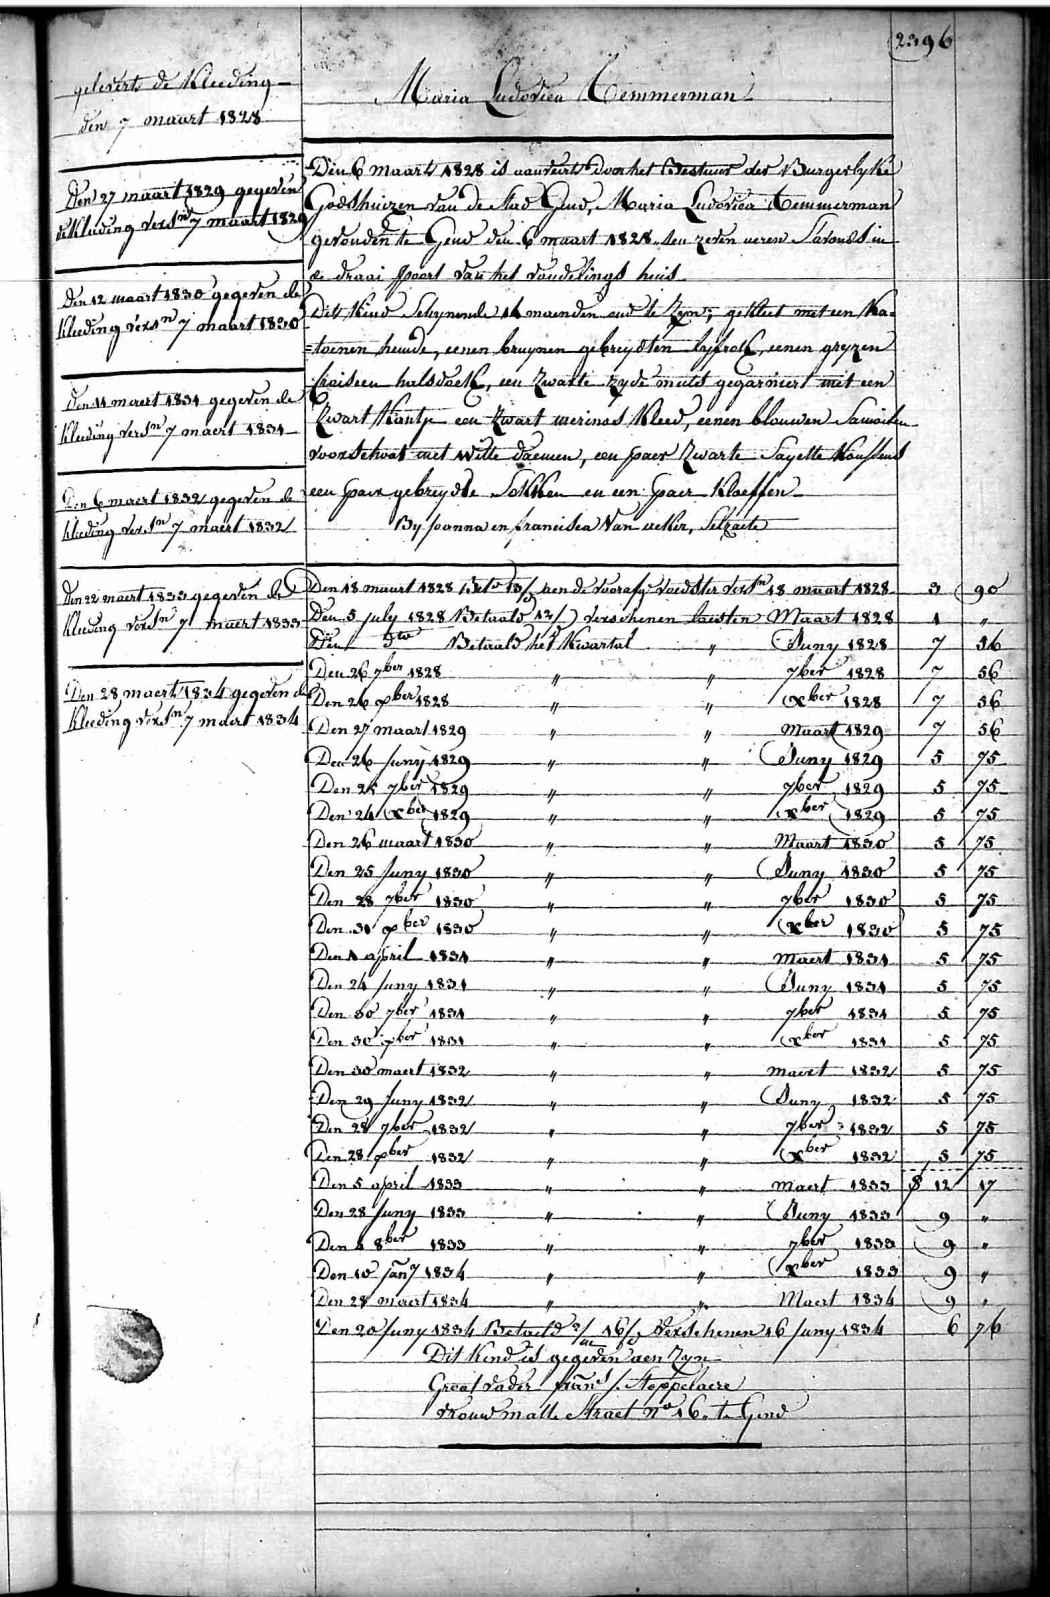 2396
gelevert de Kleeding
den 7 maart 1828
Maria Ludovica Temmerman
Den 27 maart 1829 gegeven
de Kleeding versn 7 maart 1829
Den 12 maart 1830 gegeven de
Kleeding versn 7 maart 1830
Den 11 maert 1831 gegeven de
Kleeding versn 7 maert 1831
Den 6 maert 1832 gegeven de
kleeding versn 7 maert 1832
Den 22 maert 1833 gegeven de
kleeding versn 7 maert 1833
Den 28 maert 1834 gegeven de
Kleeding versn 7 maert 1834
Den 6 maart 1828 is aanveirt door het Bestuur der Burgerlyke
Godshuizen van de Stad Gend, Maria Ludovica Temmerman
gevonden te Gend den 6 maart 1828 ten zeven ueren Savonds in
de draai poort van het vondelings huis
Dit Kind Schynende 14 maenden oud te Zyn, gekleet met een Ka=
=toenen hemde, eenen bruynen gebreydten lyfrock, eenen gryzen
halsdoek, een zwarte zyde muts gegarniert met een
Zwart Kantje een Zwart merinos Kleed, eenen blouwen
voorschoot met witte daemen, een paer Zwarte Sayette Koussens
een paer gebreydde Sokken en een paer Kloeffen
By Joanna en francisca Van Selzaete
Den 18 maart 1828 aen de voorafg voedster versn 18 maart 1828 3 90
Den 5 july 1828 Betaald verschenen laesten Maart 1828 1 "
Den dto Betaald het Kwartal " Juny 1828 7 56
Den 26 7ber 1828 " " 7ber 1828 7 56
Den 26 xber 1828 " " xber 1828 7 56
Den 27 maart 1829 " " Maart 1829 7 56
Den 26 Juny 1829 " " Juny 1829 5 75
Den 25 7ber 1829 " " 7ber 1829 5 75
Den 24 xber 1829 " " xber 1829 5 75
Den 26 maart 1830 " " Maart 1830 5 75
Den 25 Juny 1830 " " Juny 1830 5 75
Den 28 7ber 1830 " " 7ber 1830 5 75
Den 31 xber 1830 " " xber 1830 5 75
Den 1 april 1831 " " maert 1831 5 75
Den 24 Juny 1831 " " Juny 1831 5 75
Den 30 7ber 1831 " " 7ber 1831 5 75
Den 30 xber 1831 " " xber 1831 5 75
Den 30 maert 1832 " " maert 1832 5 75
Den 29 Juny 1832 " " Juny 1832 5 75
Den 28 7ber 1832 " " 7ber 1832 5 75
Den 28 xber 1832 " " xber 1832 5 75
Den 5 april 1833 " " maert 1833 12 17
Den 28 Juny 1833 " " Juny 1833 9 "
Den 8ber 1833 " " 7ber 1833 9 "
Den 10 Jany 1834 " " xber 1833 9 "
Den 28 maert 1834 " " Maert 1834 9 "
Den 20 Juny 1834 Betaeld verschenen 16 Juny 1834 6 76
Dit Kind is gegeven aen Zyn
Groot vader Stoppelaere
Straet No 16 te Gend